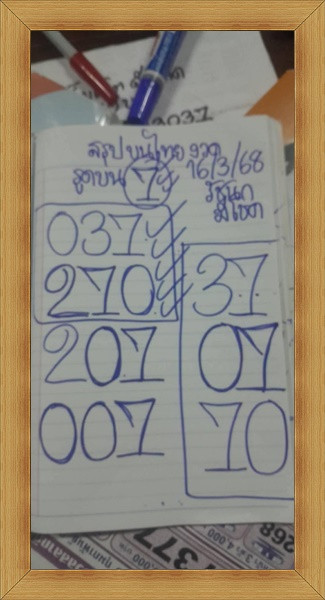 037
สรุปบนไทย งวด
16/3/68
รูดบน 7
มีโชค
037
270
37
207
07
007
70
377
268